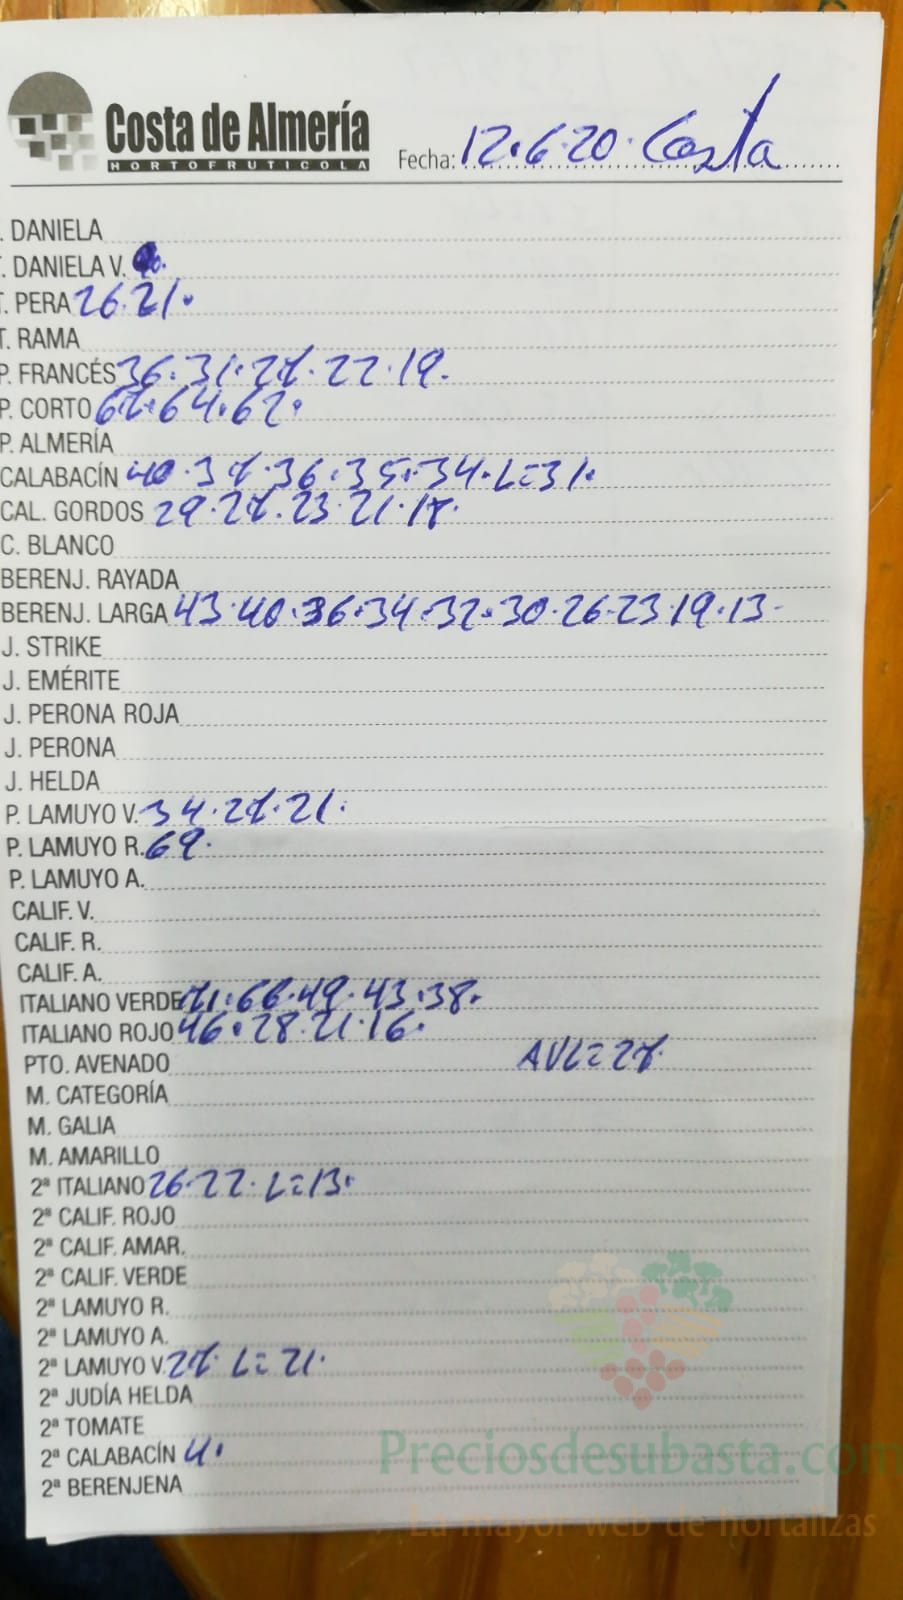 Costa de Almería
HORTOFRUTICOLA
Fecha: 12.6.20. Costa
. DANIELA
T. DANIELA V.
T. PERA 26.21.
T. RAMA
P. FRANCÉS 36.31.27.22.19.
P. CORTO 67.64.62.
P. ALMERÍA
CALABACÍN 40.37.36.35.34.L=31.
CAL. GORDOS 29.27.23.21.17.
C. BLANCO
BERENJ. RAYADA
BERENJ. LARGA 43.40.36.34.32.30.26.23.19.13-
J. STRIKE
J. EMÉRITE
J. PERONA ROJA
J. PERONA
J. HELDA
P. LAMUYO V. 34.27.21.
P. LAMUYO R. 69.
P. LAMUYO A.
CALIF. V.
CALIF. R.
CALIF. A.
ITALIANO VERDE 71.66.49.43.38.
ITALIANO ROJO 46.28.21.16.
PTO. AVENADO AVL=27.
M. CATEGORÍA
M. GALIA
M. AMARILLO
2ª ITALIANO 26.22. L=13.
2ª CALIF. ROJO
2ª CALIF. AMAR.
2ª CALIF. VERDE
2ª LAMUYO R.
2ª LAMUYO A.
2ª LAMUYO V. 27 L=21.
2ª JUDÍA HELDA
2ª TOMATE
2ª CALABACÍN 4.
2ª BERENJENA
Preciosdesubasta.com
La mayor web de hortalizas